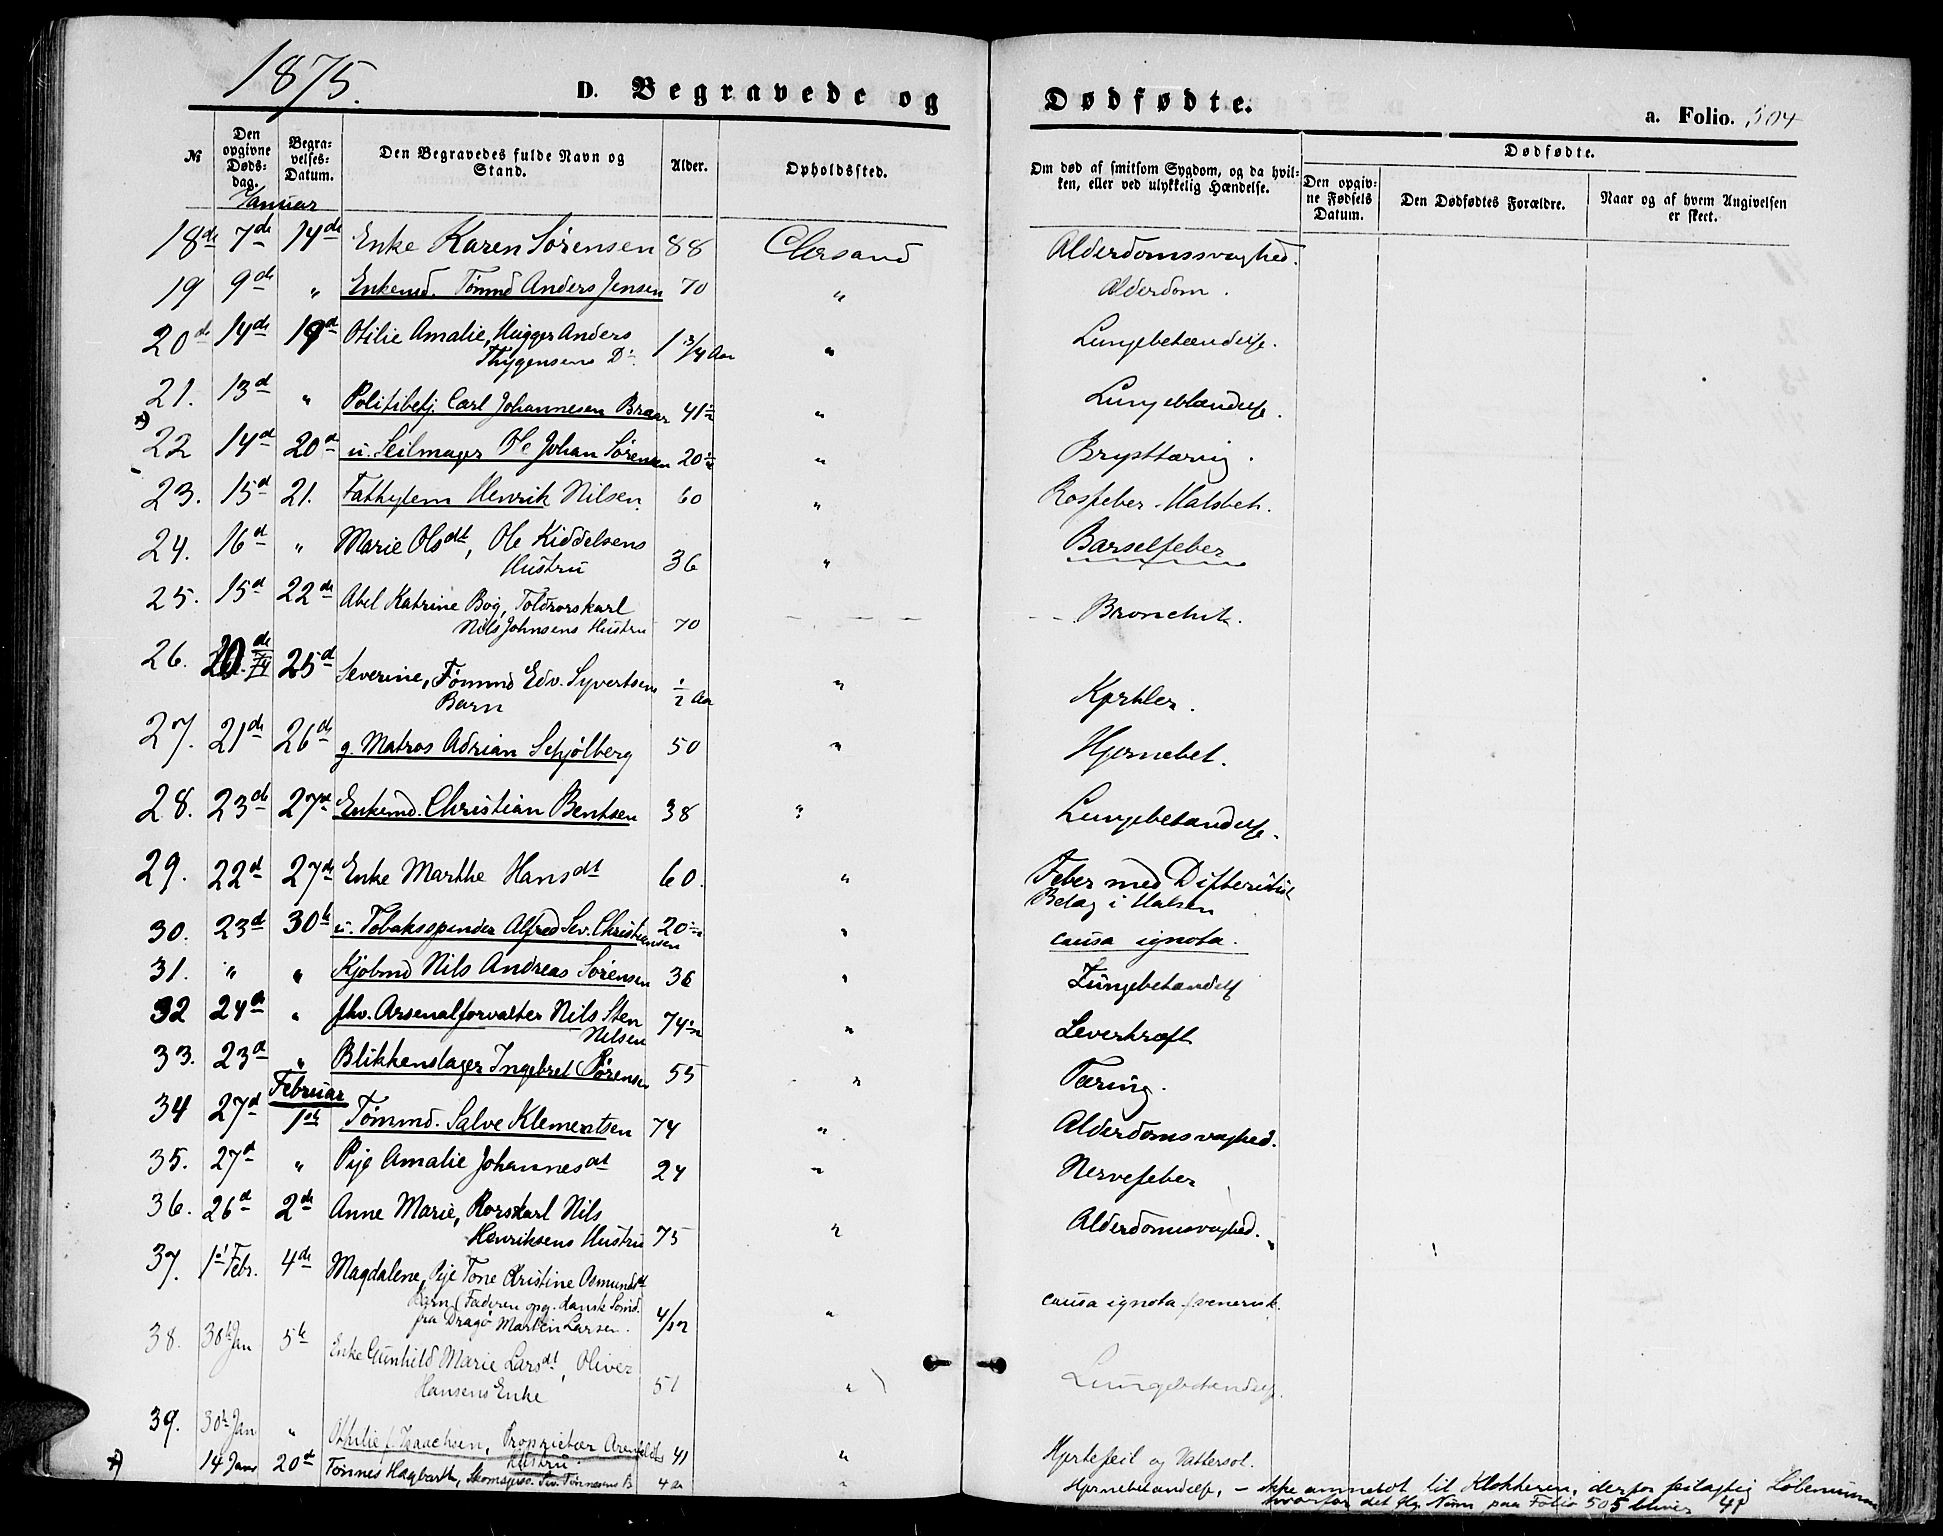 1875.
D. Begravede og Dødfødte.
a. Folio. 504
№ Den opgivne Dødsdag. Begravelses-Datum. Den Begravedes fulde Navn og Stand. Alder. Opholdssted. Om død af smitsom Sygdom, og da hvilken, eller ved ulykkelig Hændelse. Dødfødte.
Den opgivne Fødsels Datum. Den Dødfødtes Forældre. Naar og af hvem Angivelsen er skeet.
Januar
18de 7de 14de Enke Karen Sørensen 88 Chrsand Alderdomssvaghed.
19 9de " Enkemd. Tømmd Anders Jensen 70 " Alderdom.
20de 14de 19d Otilie Amalie, Hugger Anders
Thygensens D. 1 3/4 Aar " Lungebetændelse.
21. 13d " Politibetj. Carl Johannesen Braar 41½ " Lungebtændelse.
22 14d 20d u. Seilmager Ole Johan Sørensen 20½ " Brysttæring.
23. 15d 21. Fattiglem Henrik Nilsen. 60 " Rosfeber. Halsbet.
24. 16d " Marie Olsdt, Ole Kiddelsens
Hustru 36 " Barselfeber
25. 15d 22de Abel Katrine Bog, Toldrorskarl
Nils Johnsens Hustru 70 - - - - Bronchit.
26. 20de/74 25d Severine, Tømmd Edv. Syvertsens
Barn ½ Aar " Kjrtler.
27. 21de 26de g. Matros Adrian Schjølberg 50 " Hjernebet.
28. 23de 27d Enkemd. Christian Bentsen 38 " Lungebetændelse.
29. 22d 27de Enke Marthe Hansdt 60. " Feber med Difteritisk
Belæg i Halsen
30. 23d 30te u. Tobaksspinder Alfred Sev. Christiansen 20½ " causa ignota.
31. " " Kjøbmd Nils Andreas Sørensen 36 " Lungebetændelse
32 24d " fhv. Arsenalforvalter Nils Sten
Nilsen 74½ " Leverkræft
33. 23d " Blikkenslager Ingebret Sørensen 55 " Tæring.
Februar
34 27d 1ste Tømmd. Salve Klementsen 74 " Alderdomsvaghed.
35. 27d " Pige Amalie Johannesdt 24 " Nervefeber
36. 26d 2de Anne Marie, Rorskarl Nils
Henriksens Hustru 75 " Alderdomssvaghed.
37. 1st Febr. 4de Magdalene, Pige Tone Kristine Osmundsdt
Barn (Faderen opg. dansk Sømd.
fra Dragø Martin Larsen. 4/12 " causa ignota (venerisk.
38. 30te Jan 5te Enke Gunhild Marie Larsdt, Oliver
Hansens Enke 51 " Lungebetændelse.
39. 30te Jan " Othilie f. Isaachsen, Proprietær Arenfeldts
Hustru. 41 " Hjertefeil og Vattersot.
14 Janr 20de Tønnes Hagbarth, Skomagersv. Sev. Tønnesens B 4 Aar " Hjernebetændelse, - ikke anmeldt til Klokkeren, derfor feilagtig Løbenumer
hvorfor det flg. Num. paa Folio 505 bliver 41